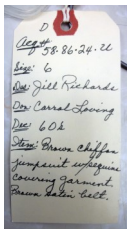 D
Acq# 58.86.24.2L
Size: 6
Des: Jill Richards
Don: Carrol Loving
Dec: 60s
Item: Brown chiffon
jumpsuit w/sequins
covering garment.
Brown satin belt.